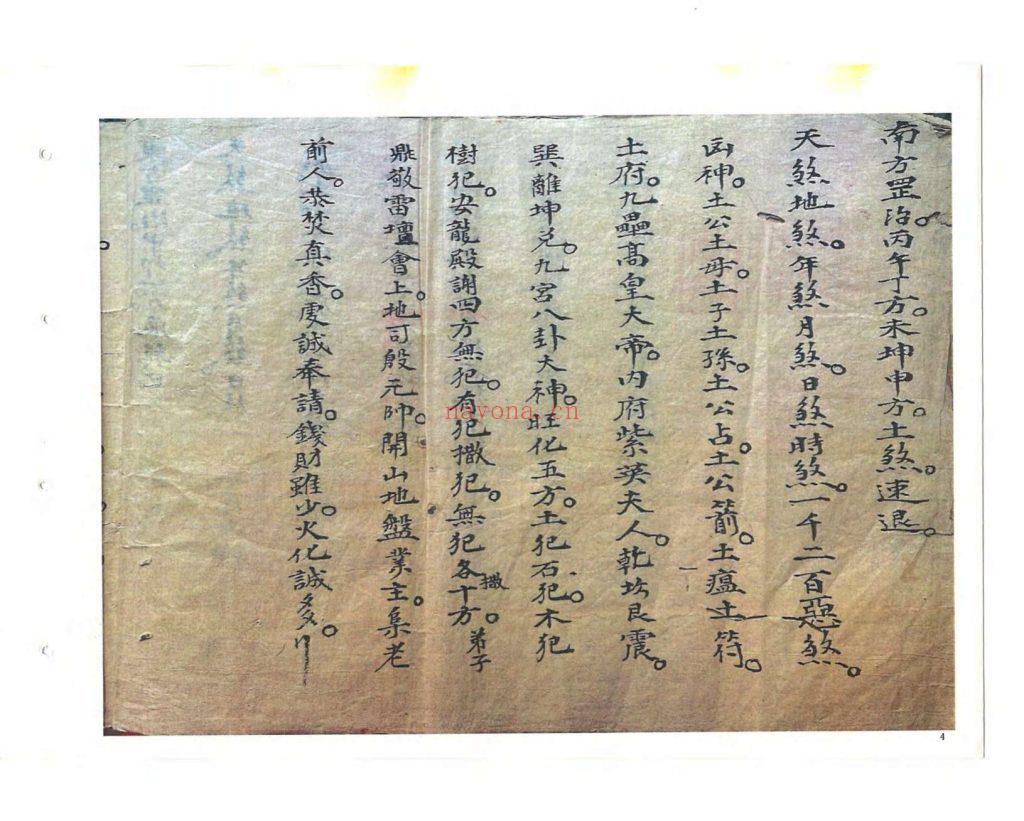 南方罡治。丙午丁方。未坤申方。土煞。速退。
天煞地煞。年煞月煞。日煞時煞。一千二百惡煞。
凶神。土公土母。土子土孫。土公占。土公箭。土瘟土符。
土府。九壘高皇大帝。內府紫英夫人。乾坎艮震。
巽離坤兌。九宮八卦大神。旺化五方。土犯石犯。木犯
樹犯。安龍殿謝四方無犯。有犯撒犯。無犯各撒十方。弟子
鼎敬雷壇會上。地司殷元帥。開山地盤業主。集老
前人。恭焚真香。虔誠奉請。錢財雖少。火化誠多。
nayona.cn
4